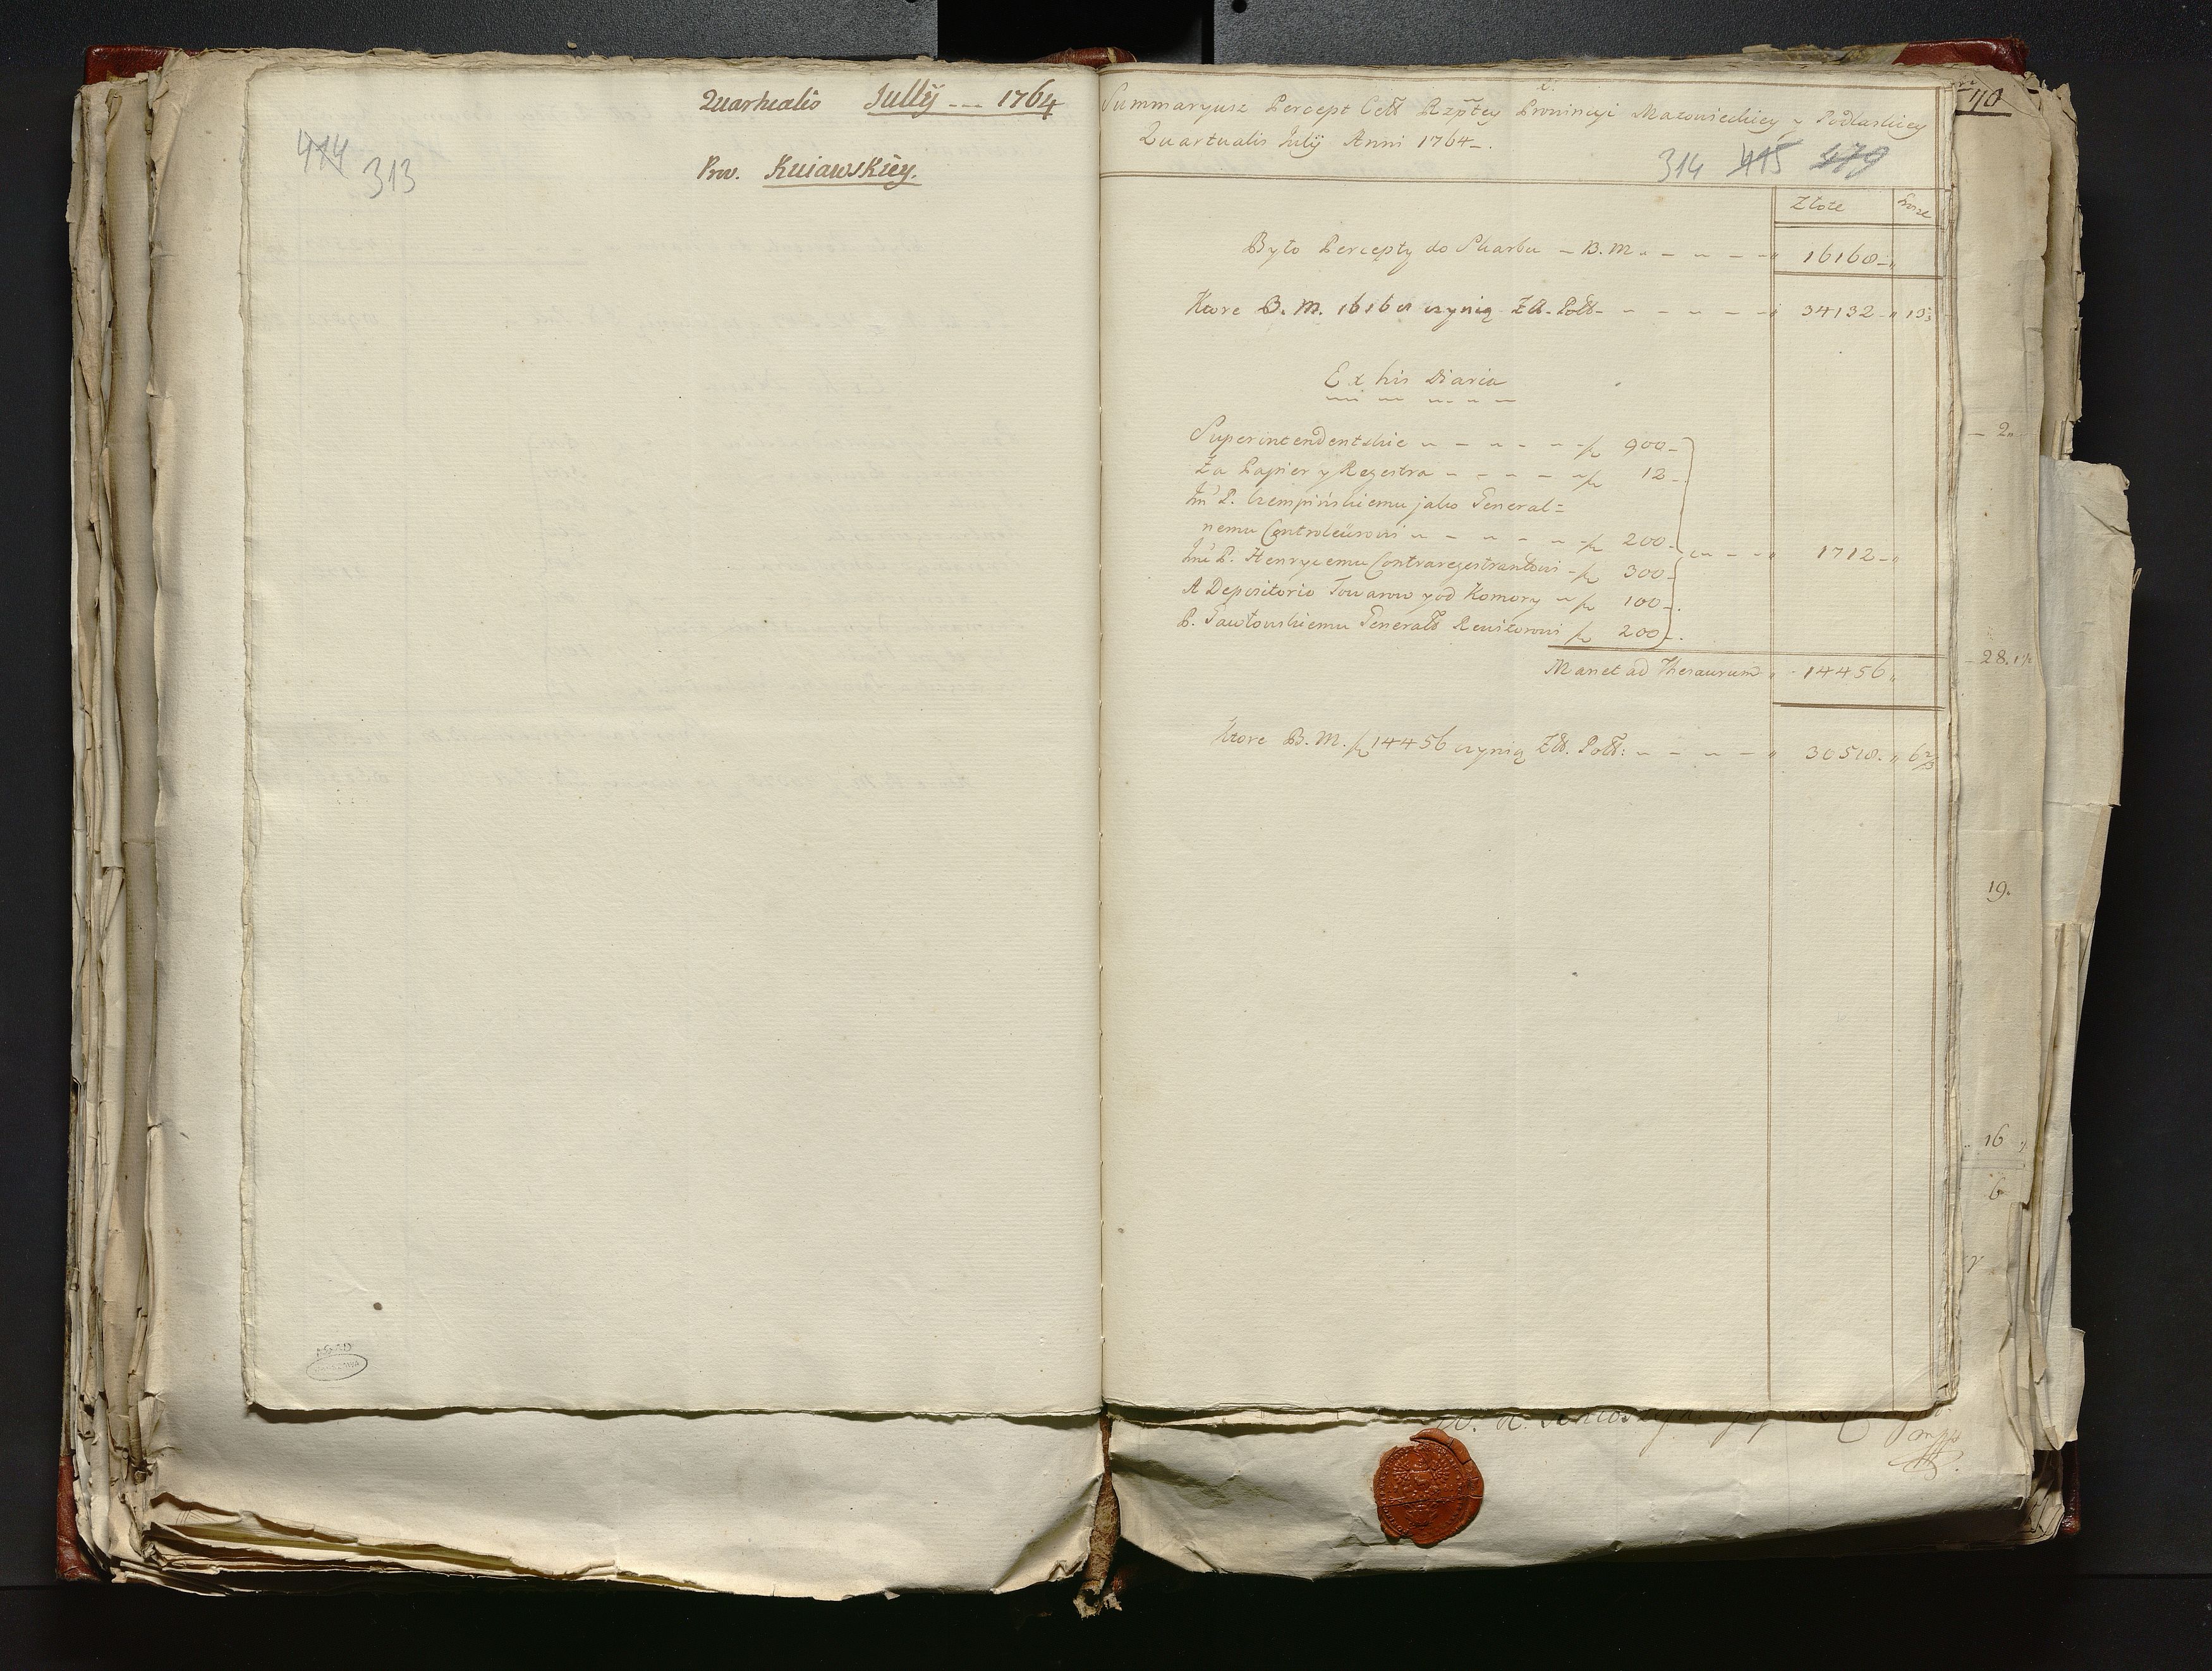 Quartualis Jullÿ --- 1764
414 313
Prw. Kuiawskiey.
Summaryusz Percept Cełł Rzpltey Prowincyi Mazowieckiey y Podlaskiey
Quartualis Julÿ Anni 1764
314 415 479
Złote
Było Percepty do Skarbu – B. M. 16168
Ktore B. M. 16168 czynią Złł. Poll 34132
Ex his Diaria
Superintendentskie 900
Za Papier y Regestra 12
P. Czempińskiemu jako General=
nemu Controleürowi 200
P. Henrycemu Contraregestrantowi 300
A Depositorio Towarow y od Komory 100
P. Pawłowskiemu Generall Rewisorowi 200
1712
Manet ad Thesaurum 14456
Ktore B. M. 14456 czynią Złł. Poll: 30518 6 2/3
2
28.
19.
16
6